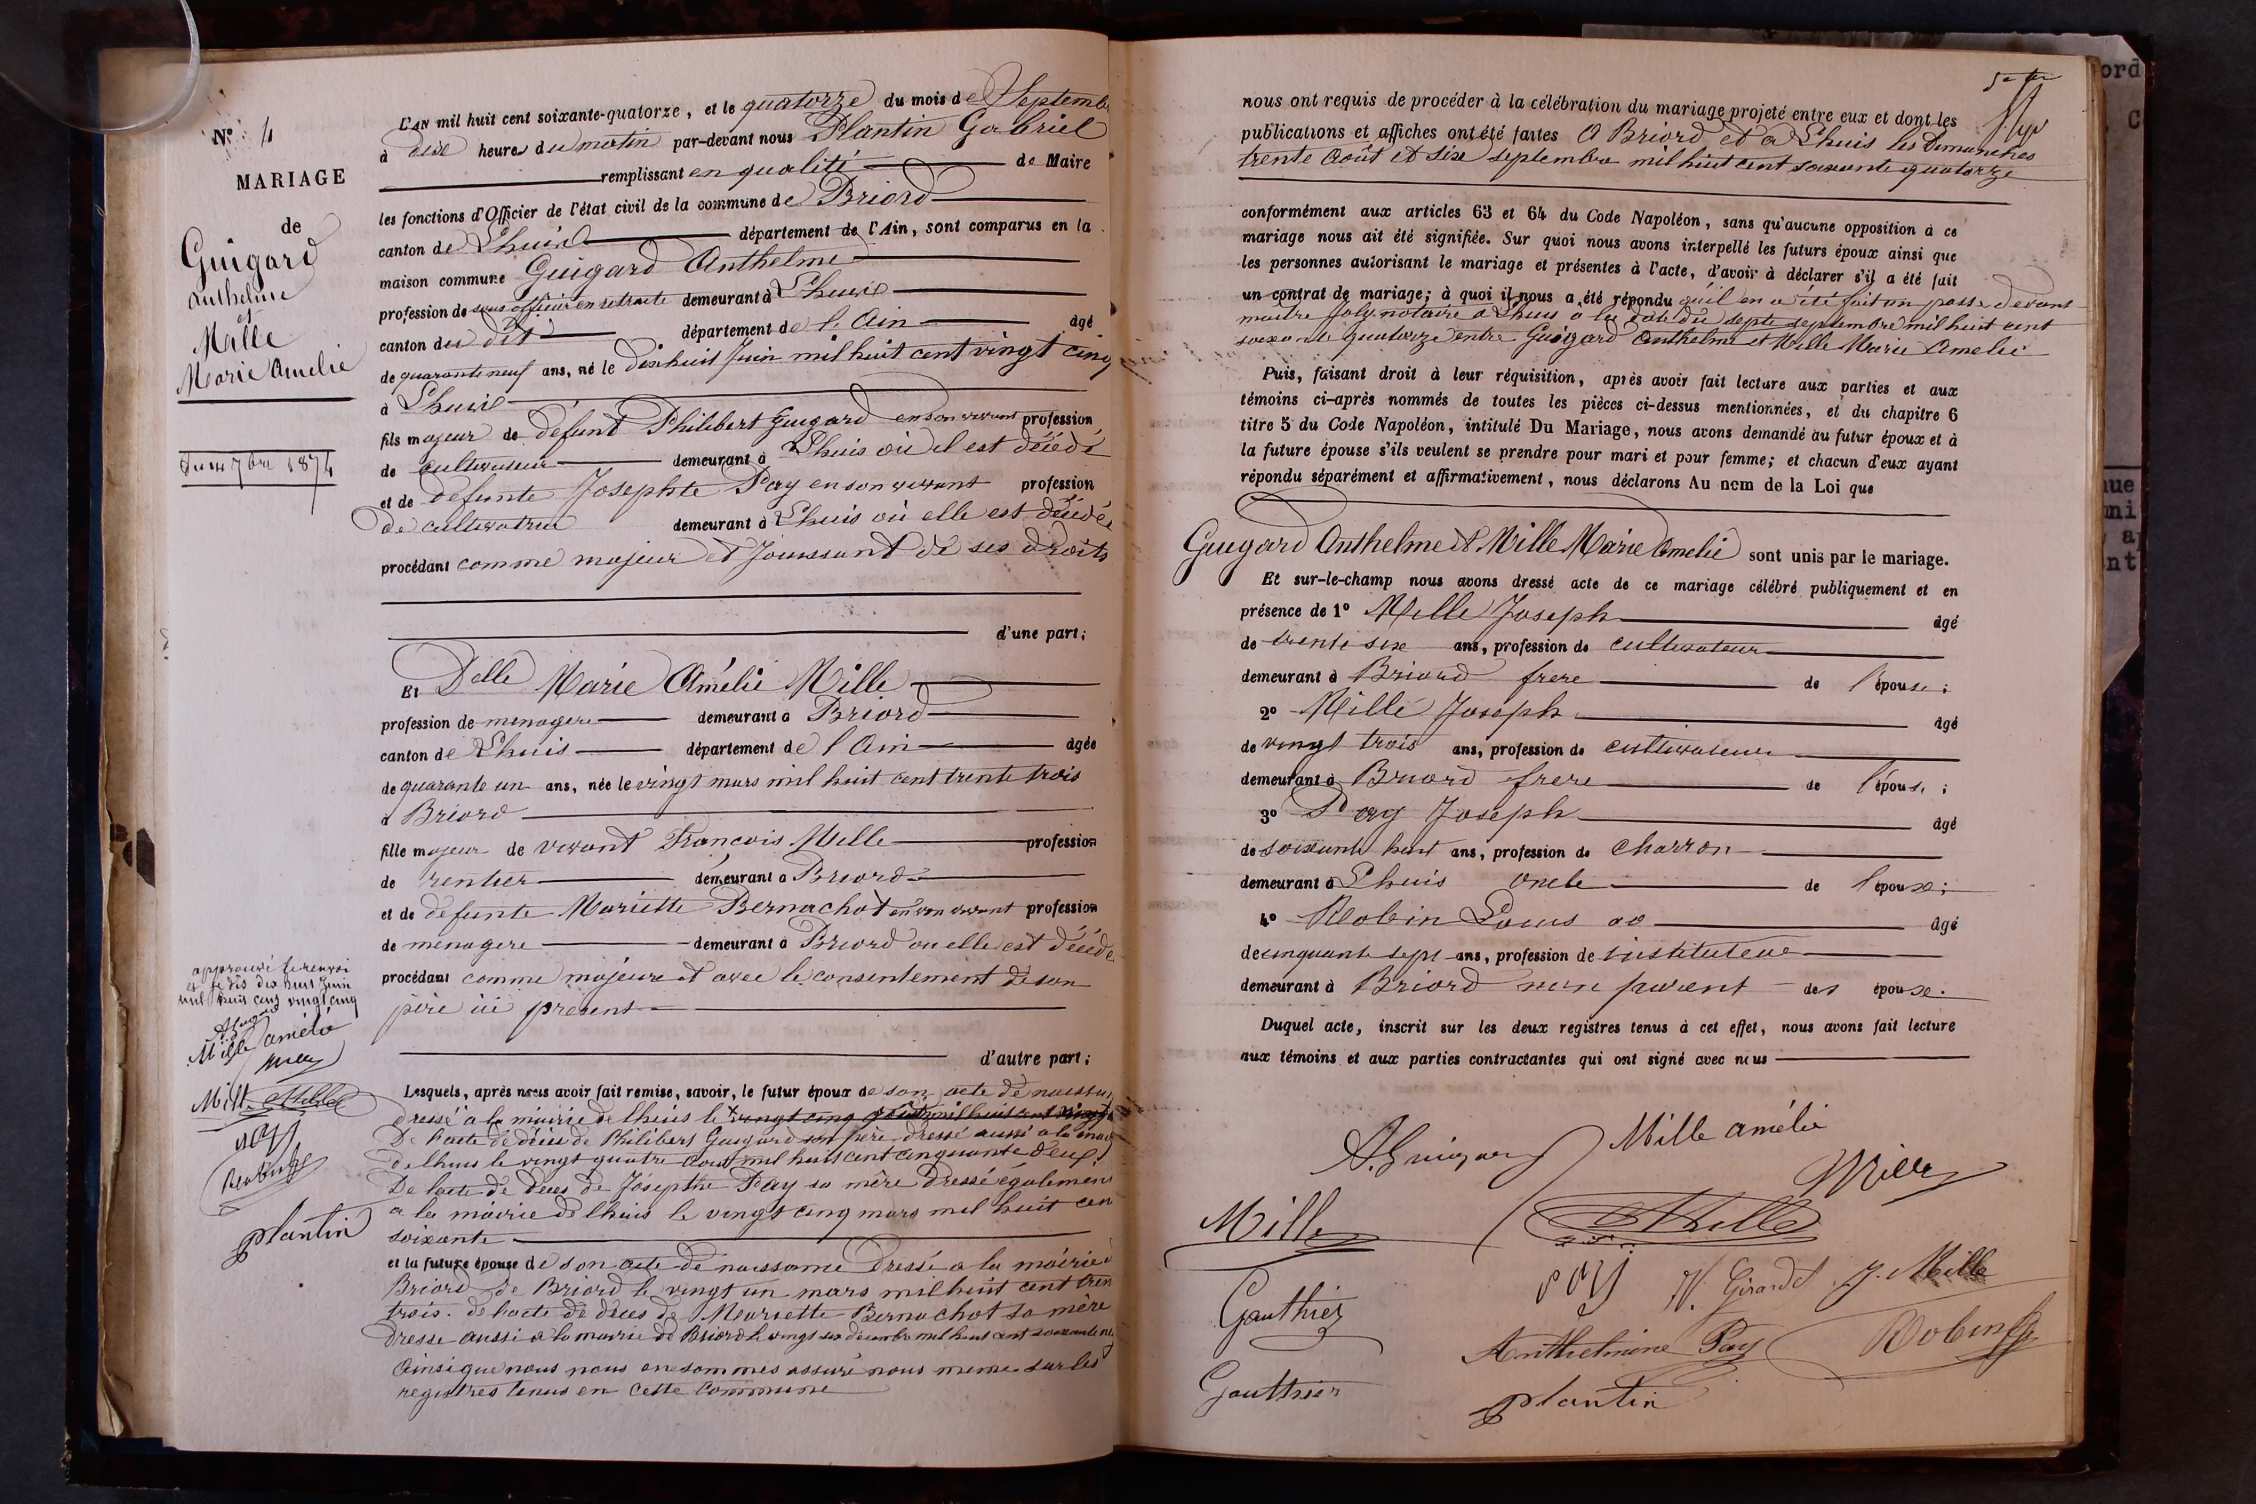 N° 4
MARIAGE
de
Guigard
Anthelme
et
Mille
Marie Amelie
Du 14 7bre 1874
L'AN mil huit cent soixante-quatorze, et le quatorze du mois de Septembre
à dix heures du matin par-devant nous Plantin Gabriel
remplissant en qualité de Maire
les fonctions d'Officier de l'état civil de la commune de Briord
canton de Lhuis département de l'Ain, sont comparus en la
maison commune Guigard Anthelme
profession de sous officier en retraite demeurant à Lhuis
canton du dit département de l'Ain âgé
de quarante neuf ans, né le dix huit Juin mil huit cent vingt cinq
à Lhuis
fils majeur de défunt Philibert Guigard en son vivant profession
de cultivateur demeurant à Lhuis où il est décédé
et de défunte Josephte Pay en son vivant profession
de cultivatrice demeurant à Lhuis où elle est décédée
procédant comme majeur et Jouissant de ses droits
d'une part;
Et Delle Marie Amélie Mille
profession de menagere demeurant à Briord
canton de Lhuis département de l'Ain âgée
de quarante un ans, née le vingt mars mil huit cent trente trois
à Briord
fille majeur de vivant Francois Mille profession
de rentier demeurant à Briord
et de défunte Mariette Bernachot en son vivant profession
de menagere demeurant à Briord ou elle est décédée
procédant comme majeure et avec le consentement de son
père ici présent
d'autre part;
Lesquels, après nous avoir fait remise, savoir, le futur époux de son acte de naissance
dressé à la mairie de lhuis le vingt cinq mil huit cent vingt
De l'acte de décès de Philibert Guigard son père dressé aussi a la mairie
de lhuis le vingt quatre Aout mil huit cent cinquante deux
De l'acte de deces de Josephte Pay sa mère Dressé également
a la mairie de lhuis le vingt cinq mars mil huit cent
soixante
et la future épouse de son acte de naissance Dressé a la mairie de
Briord de Briord le vingt un mars mil huit cent trente
trois. de l'acte de décès de Mariette Bernachot sa mère
dresse aussi a la mairie de Briord le vingt six décembre mil huit cent soixante
Ainsi que nous nous en sommes assuré nous meme sur les
registres tenus en cette commune
approuvé le renvoi
et le dis dix huit Juin
mil huit cent vingt cinq
A Guigard
Mille amélie
Mille
Mille Mille
pay
Robin
plantin
nous ont requis de procéder à la célébration du mariage projeté entre eux et dont les
publications et affiches ont été faites A Briord et a Lhuis les Dimanches
trente Août et six septembre mil huit cent soixante quatorze
conformément aux articles 63 et 64 du Code Napoléon, sans qu'aucune opposition à ce
mariage nous ait été signifiée. Sur quoi nous avons interpellé les futurs époux ainsi que
les personnes autorisant le mariage et présentes à l'acte, d'avoir à déclarer s'il a été fait
un contrat de mariage; à quoi il nous a été répondu qu'il en a été fait un passé devant
maitre Joly notaire a Lhuis a la date du sept septembre mil huit cent
soixante quatorze entre Guigard Anthelme et Mille Marie Amelie
Puis, faisant droit à leur réquisition, après avoir fait lecture aux parties et aux
témoins ci-après nommés de toutes les pièces ci-dessus mentionnées, et du chapitre 6
titre 5 du Code Napoléon, intitulé Du Mariage, nous avons demandé au futur époux et à
la future épouse s'ils veulent se prendre pour mari et pour femme; et chacun d'eux ayant
répondu séparément et affirmativement, nous déclarons Au nom de la Loi que
Guigard Anthelme et Mille Marie Amelie sont unis par le mariage.
Et sur-le-champ nous avons dressé acte de ce mariage célébré publiquement et en
présence de 1° Mille Joseph âgé
de trente six ans, profession de cultivateur
demeurant à Briord frere de l'épouse;
2° Mille Joseph âgé
de vingt trois ans, profession de cultivateur
demeurant à Briord frere de l'épouse;
3° Pay Joseph âgé
de soixante huit ans, profession de charron
demeurant à Lhuis oncle de l'époux;
4° Robin Louis âgé
de cinquante sept ans, profession de instituteur
demeurant à Briord non parent des époux.
Duquel acte, inscrit sur les deux registres tenus à cet effet, nous avons fait lecture
aux témoins et aux parties contractantes qui ont signé avec nous
A. Guigard Mille amélie
Mille
Mille Mille
pay N. Girardet J. Mille
Gauthier
Anthelmine Pay Robin
Gauthier
plantin